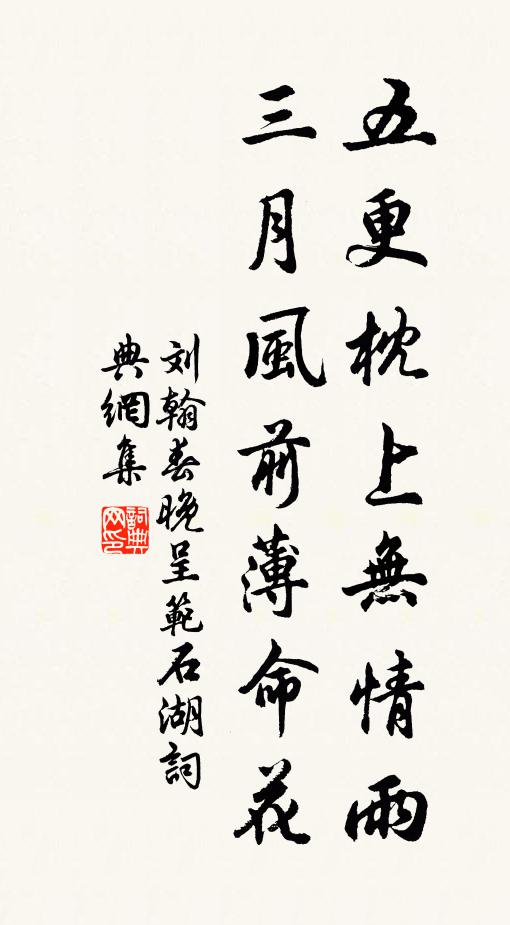 五更枕上無情雨
三月風前薄命花
刘翰春晚呈範石湖詞
典網集
詞典网印